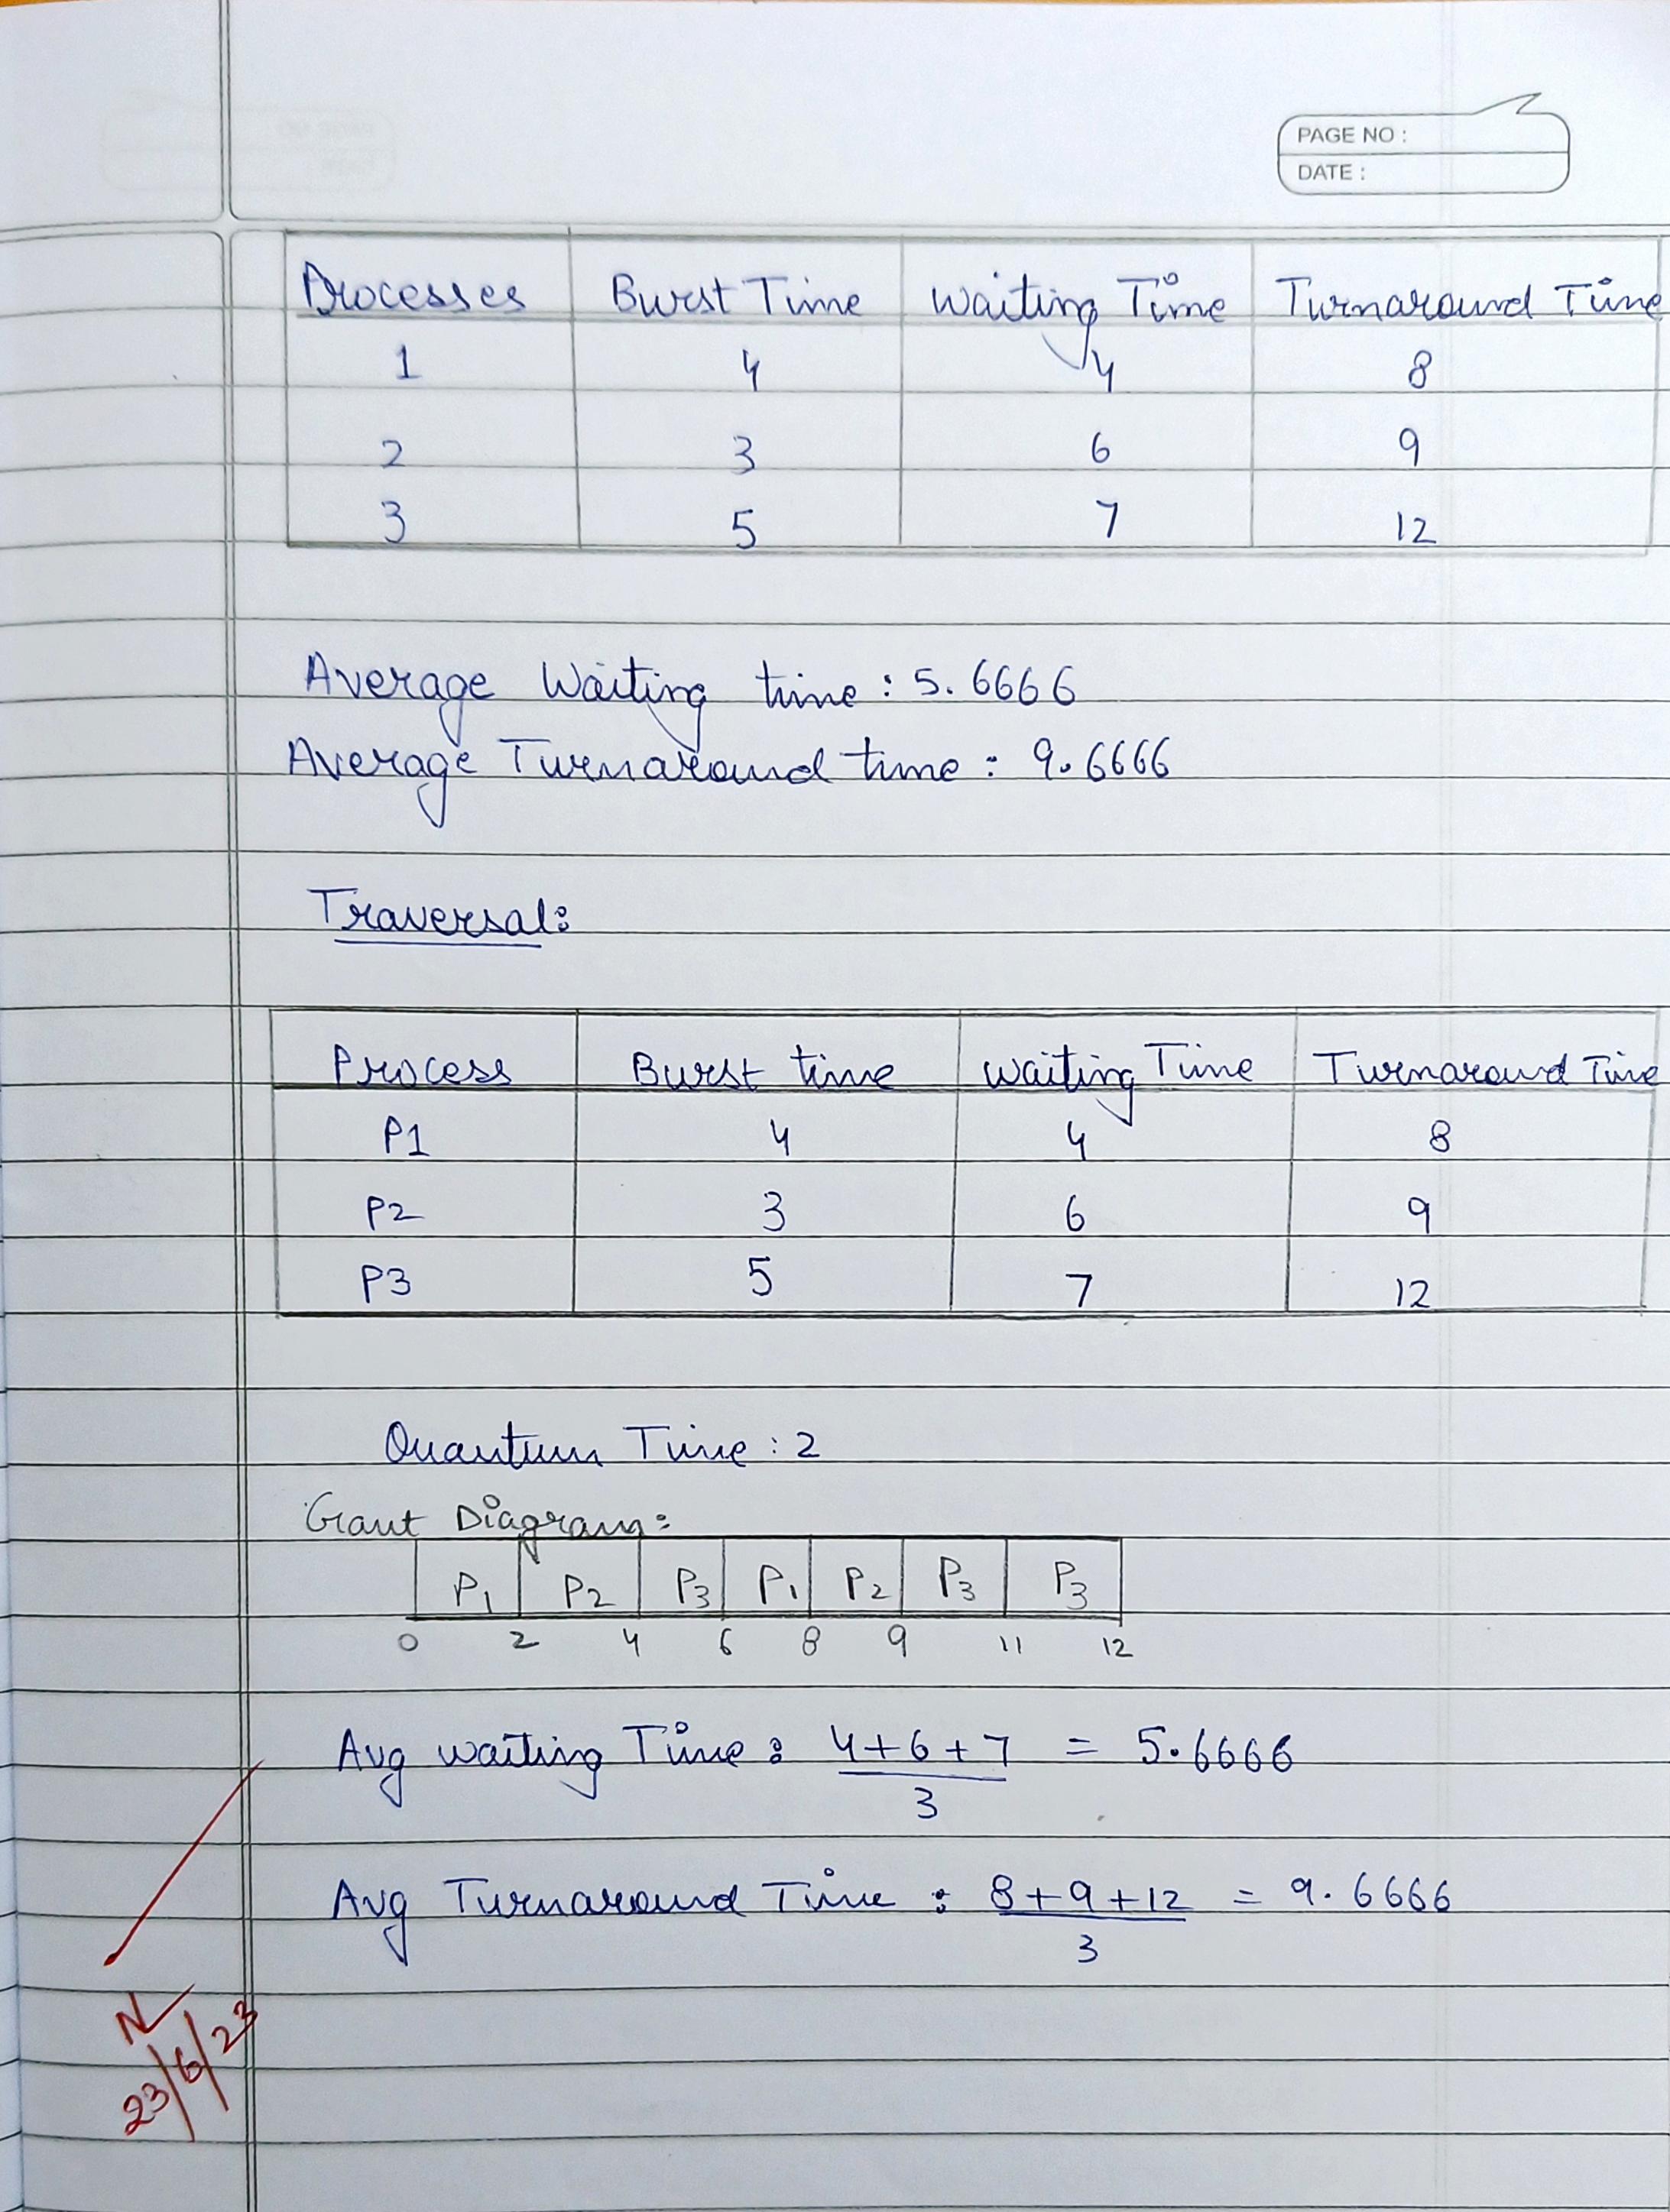 PAGE NO :
DATE :
Processes Burst Time Waiting Time Turnaround Time
1 4 4 8
2 3 6 9
3 5 7 12
Average Waiting time : 5.6666
Average Turnaround time : 9.6666
Traversal:
Process Burst time Waiting Time Turnaround Time
P1 4 4 8
P2 3 6 9
P3 5 7 12
Quantum Time : 2
Gant Diagram:
P1 P2 P3 P1 P2 P3 P3
0 2 4 6 8 9 11 12
Avg waiting Time : 4+6+7 = 5.6666
3
Avg Turnaround Time : 8+9+12 = 9.6666
3
N
23/6/23